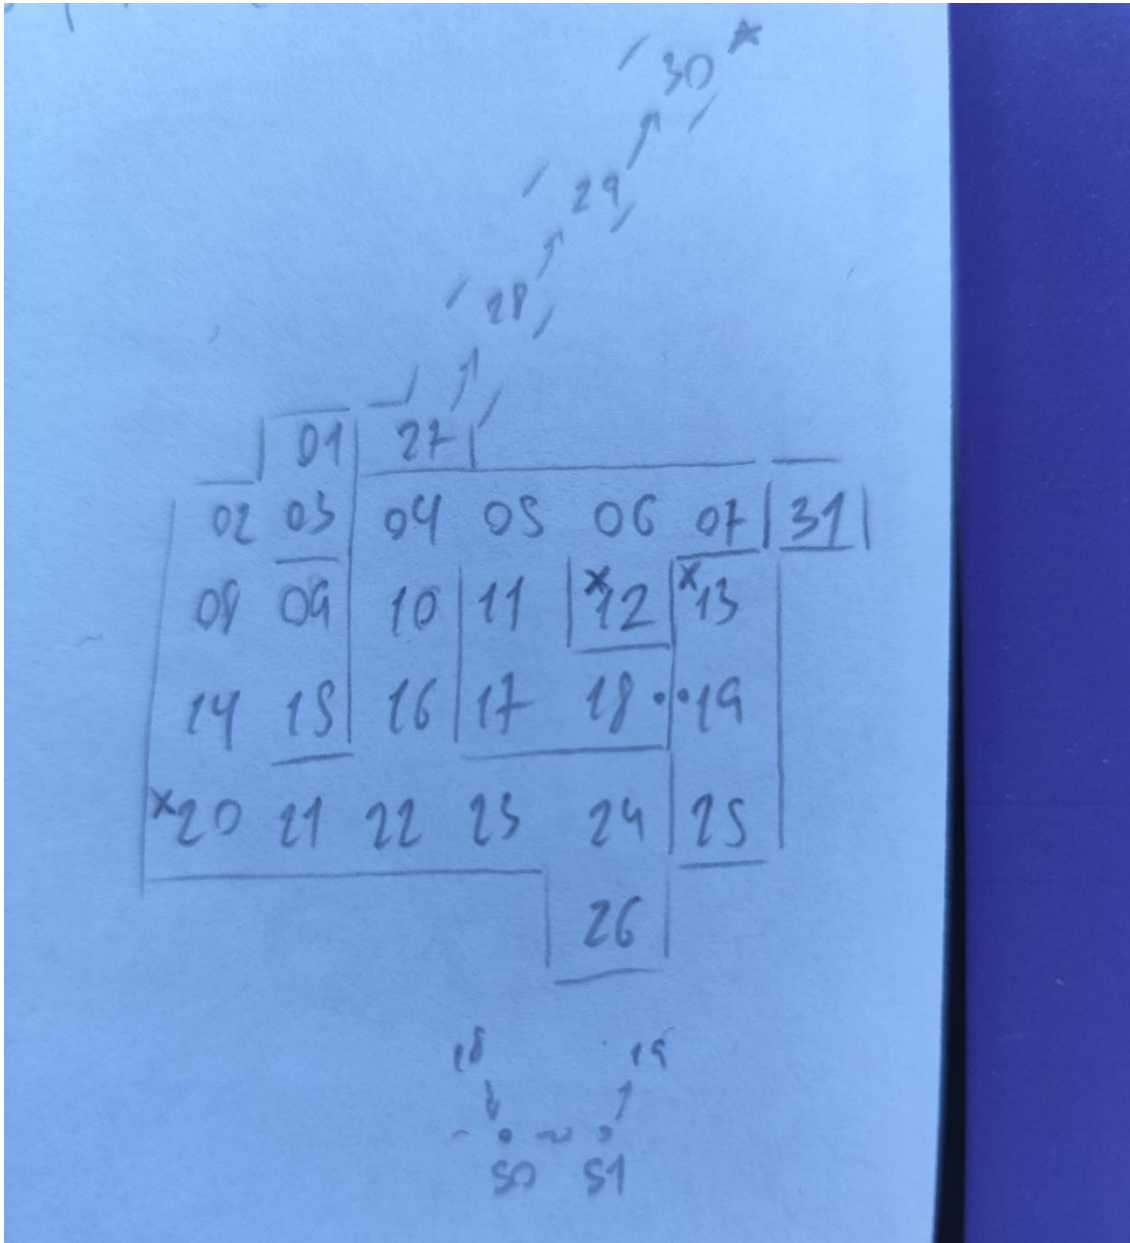 30
29
28
01 27
02 03 04 05 06 07 31
08 09 10 11 12 13
14 15 16 17 18 19
20 21 22 23 24 25
26
18 19
50 51